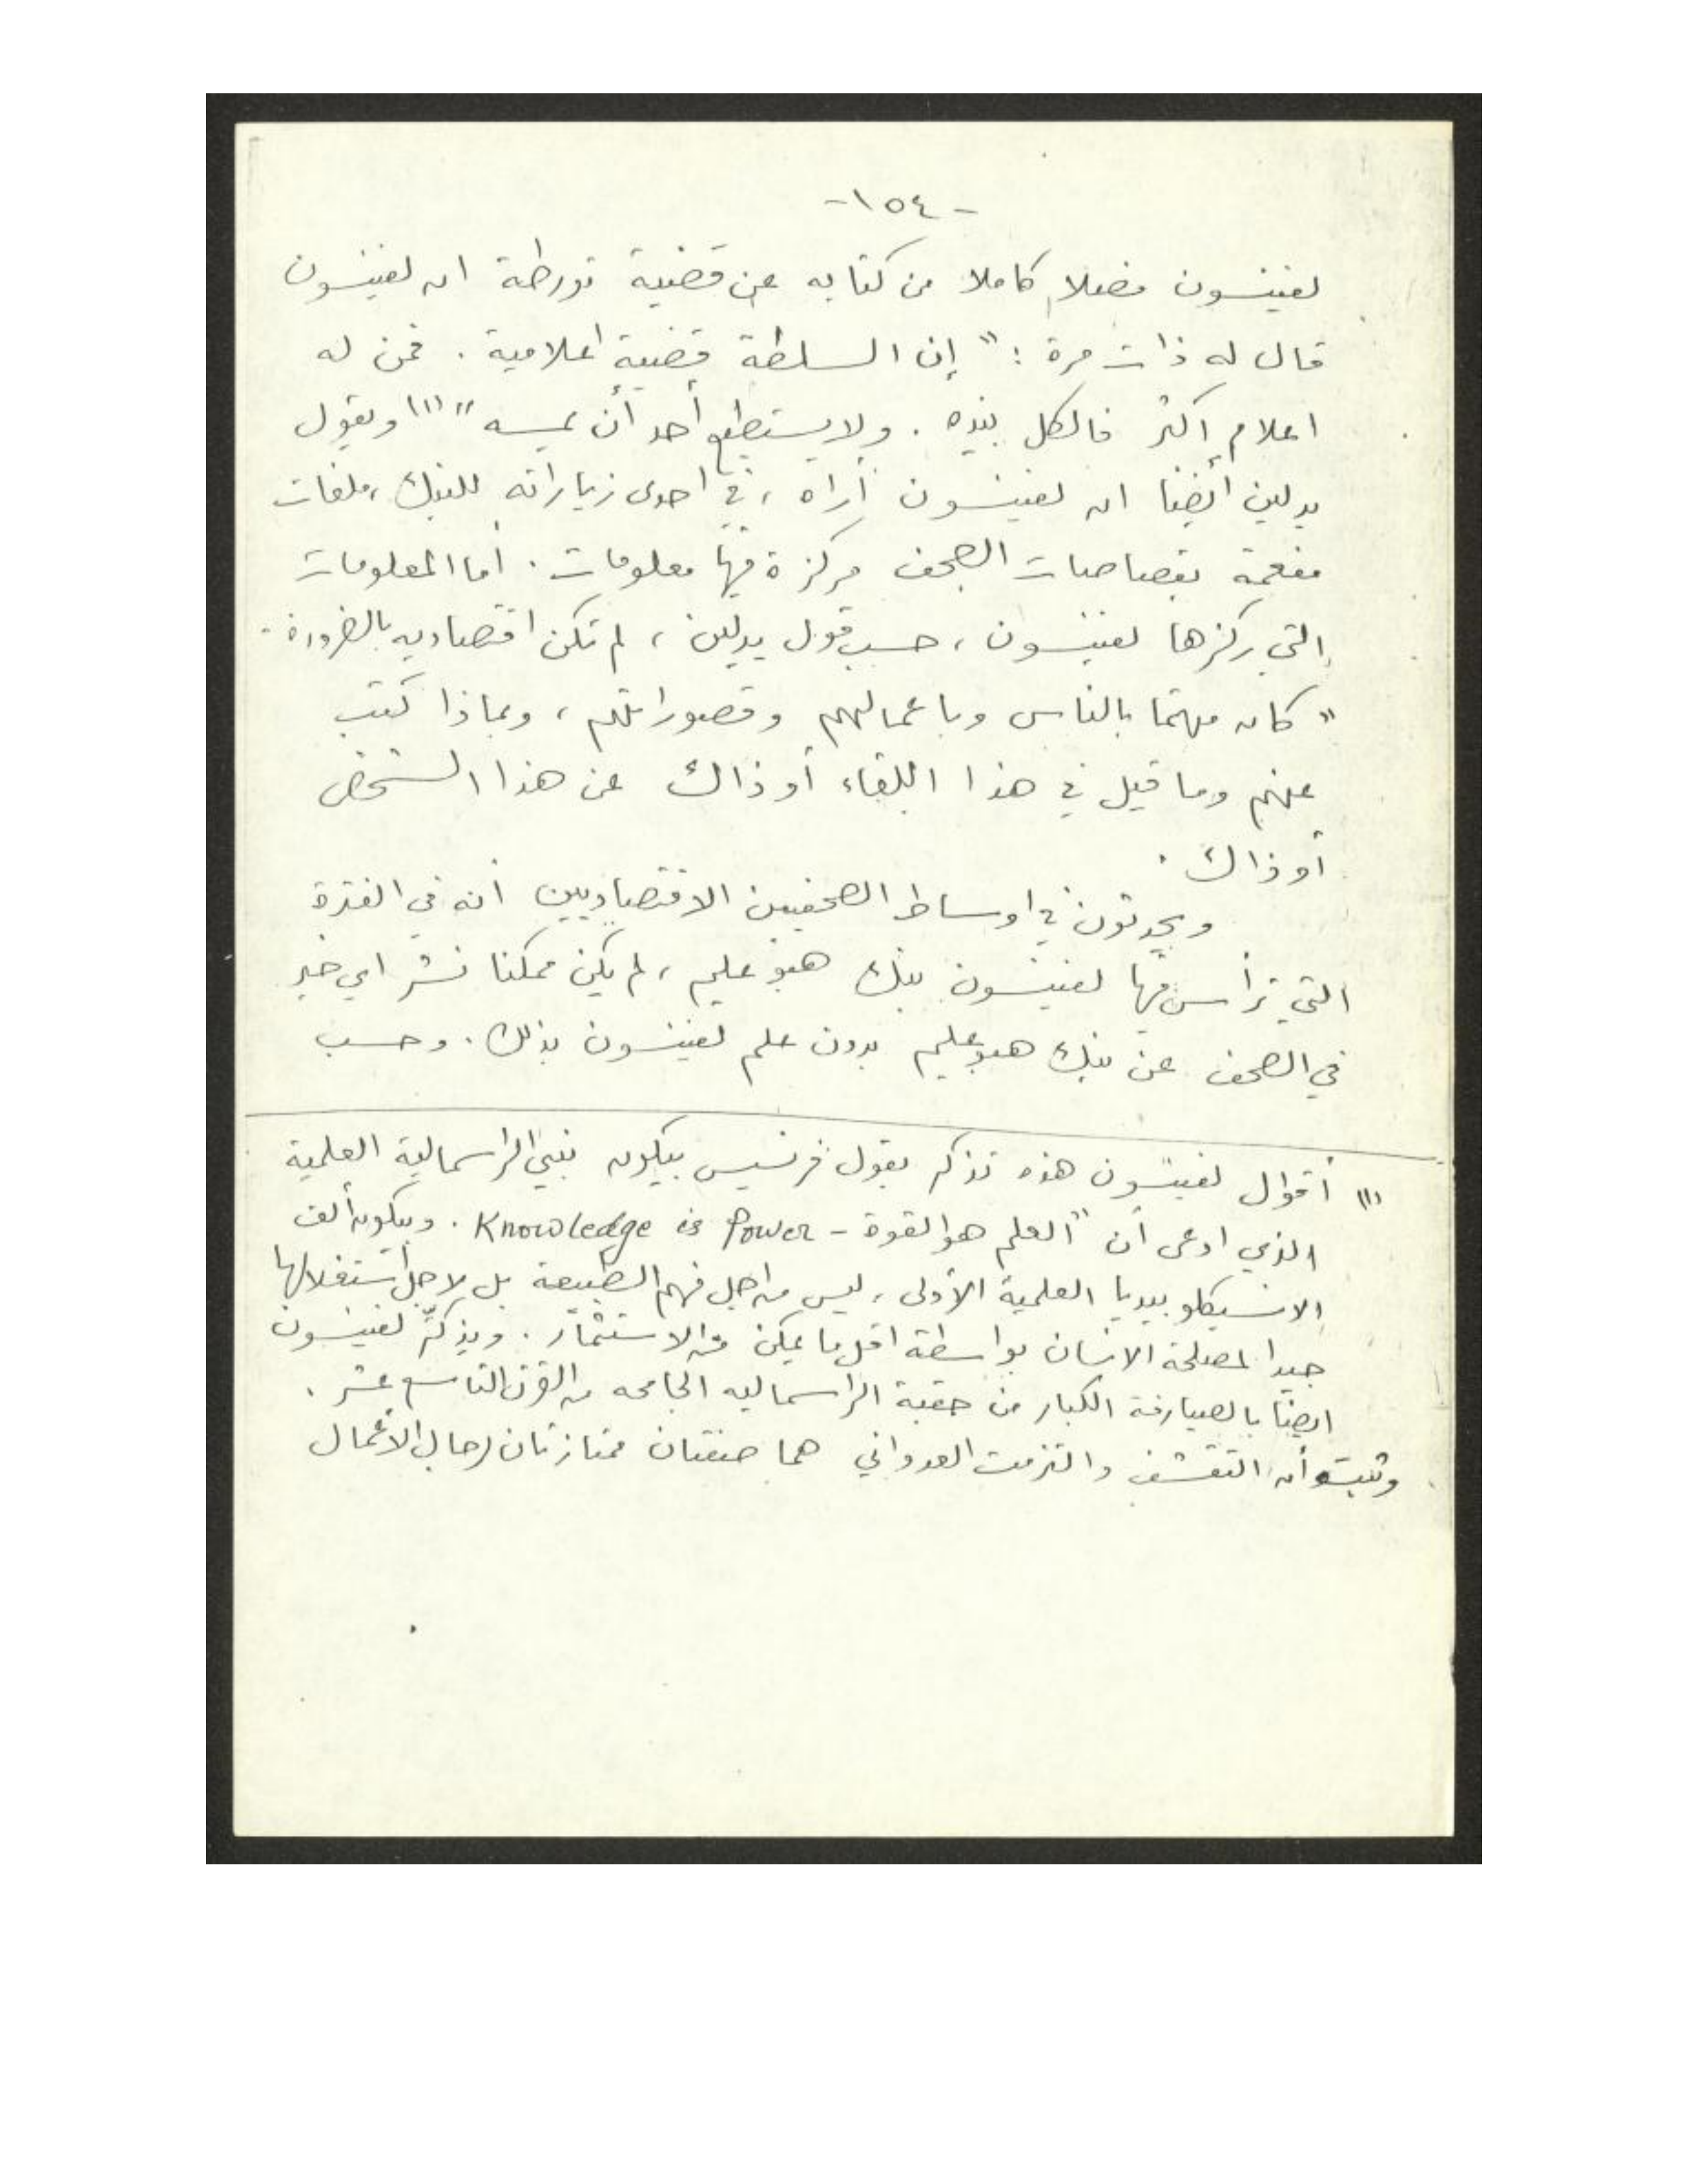 - ١٥٤ -
لفينسون فصلا كاملا من كتابه عن قضية تورطه ان لفينسون
قال له ذات مرة : " إن السلطة قضية اعلامية . فمن له
اعلام أكثر فالكل بيده . ولا يستطيع أحد أن يمسه " (١) ويقول
يدلين أيضا ان لفينسون أراه ، في احدى زياراته للبنك ، ملفات
مفعمة بقصاصات الصحف مركزة فيها معلومات . أما المعلومات
التي ركزها لفينسون ، حسب قول يدلين ، لم تكن اقتصاديه بالضرورة .
" كان مهتما بالناس وباعمالهم وقصوراتهم ، وبماذا كتب
عنهم وما قيل في هذا اللقاء أو ذاك عن هذا الشخص
أو ذاك .
ويحدثون في اوساط الصحفيين الاقتصاديين أنه في الفترة
التي ترأس فيها لفينسون بنك هبوعليم ، لم يكن ممكنا نشر اي خبر
في الصحف عن بنك هبوعليم بدون علم لفينسون بذلك . وحسب
(١) أقوال لفينسون هذه تذكر بقول فرنسيس بيكون نبي الراسمالية العلمية
الذي ادعى أن " العلم هو القوة - Knowledge is Power . وبيكون ألف
الانسيكلوبيديا العلمية الأولى ، ليس من اجل فهم الطبيعة بل لاجل استغلالها
جيدا لمصلحة الانسان بواسطة اقل ما يمكن من الاستثمار . ويذكّر لفينسون
ايضا بالصيارفة الكبار من حقبة الراسماليه الجامحه من القرن التاسع عشر .
وتثبت أن التقشف والتزمت العدواني هما صفتان ممتازتان لرجال الأعمال